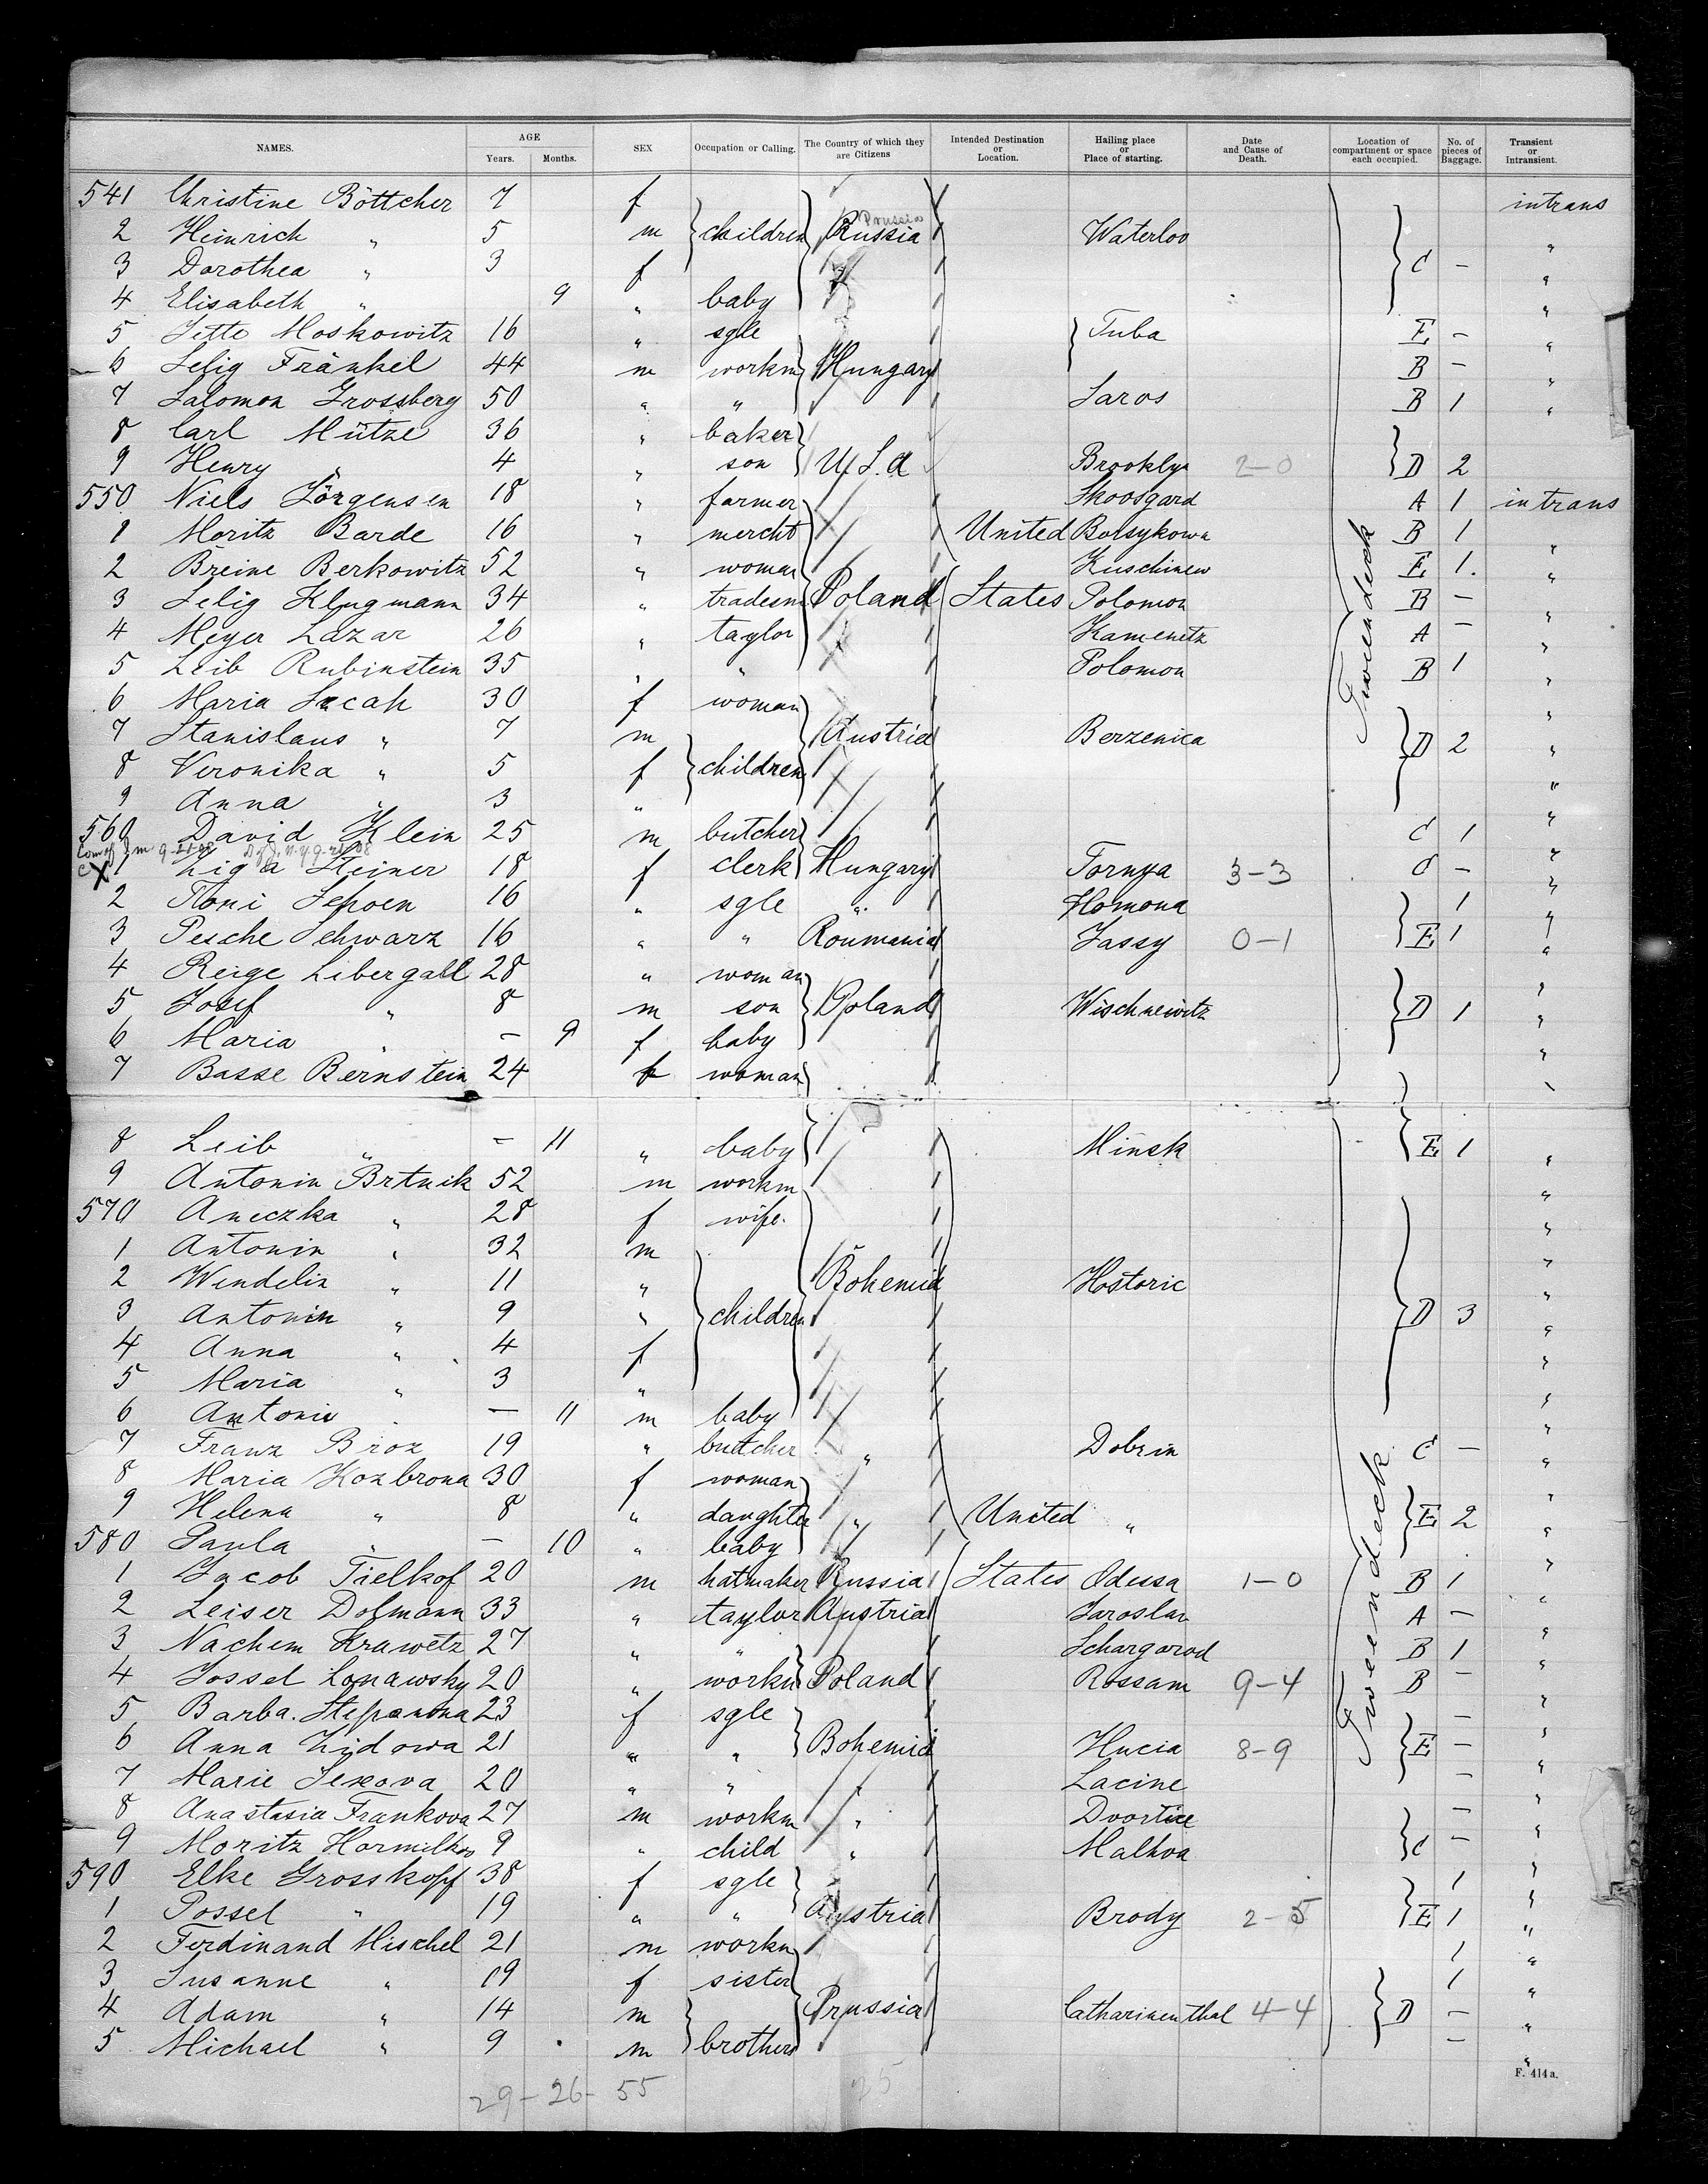 NAMES. AGE Years. Months. SEX Occupation or Calling. The Country of which they are Citizens Intended Destination or Location. Hailing place or Place of starting. Date and Cause of Death. Location of compartment or space each occupied. No. of pieces of Baggage. Transient or Intransient.
541 Christine Böttcher 7 f intrans
Prussia
2 Heinrich " 5 m children Russia Waterloo "
3 Dorothea " 3 f C - "
4 Elisabeth " 9 " baby "
5 Jette Moskowitz 16 " sgle Tuba E - "
6 Selig Fränkel 44 m workm Hungary B - "
7 Salomon Grossberg 50 " " Saros B 1 "
8 Carl Mütze 36 " baker
9 Henry " 4 " son U.S.A Brooklyn 2-0 D 2
550 Niels Jörgensen 18 " farmer Skoosgard A 1 intrans
1 Moritz Barde 16 " mercht United Bolsykowa B 1 "
2 Breine Berkowitz 52 " woman Kuschinew E 1. "
3 Selig Klugmann 34 " tradesm Poland States Polomon B - "
4 Meyer Lazar 26 " taylor Kamenetz A - "
5 Leib Rubinstein 35 " " Polomon B 1 "
6 Maria Sacah 30 f woman "
7 Stanislaus " 7 m Austria Berzenica D 2 "
8 Veronika " 5 f children "
9 Anna " 3 " "
560 David Klein 25 m butcher C 1 "
1 Ziga Steiner 18 f clerk Hungary Tornya 3-3 C - "
2 Toni Sepoen 16 " sgle " Homona 1 "
3 Pesche Schwarz 16 " " Roumania Jassy 0-1 E 1 "
4 Reige Libergall 28 " woman "
5 Josef " 8 m son Poland Wischnewitz D 1 "
6 Maria " - 9 f baby "
7 Basse Bernstein 24 f woman
8 Leib " - 11 " baby Minsk E 1 "
9 Antonin Brtnik 52 m workm "
570 Aneczka " 28 f wife. "
1 Antonin " 32 m "
2 Wendelin " 11 " Bohemia Hostoric "
3 Antonin " 9 " children D 3 "
4 Anna " 4 f "
5 Maria " 3 " "
6 Antonin - 11 m baby "
7 Franz Broz 19 " butcher " Dobrin C - "
8 Maria Kozbrona 30 f woman "
9 Helena " 8 " daughter " United " E 2 "
580 Paula " - 10 " baby "
1 Jacob Tielkof 20 m hatmaker Russia States Odessa 1-0 B 1 "
2 Leiser Dolmann 33 " taylor Austria Jaroslav A - "
3 Nachem Krawetz 27 " " Schargorod B 1 "
4 Jossel Lonawsky 20 " workm Poland Rossam 9-4 B - "
5 Barba. Stepanona 23 f sgle - "
6 Anna Zidowa 21 " " Bohemia Hucia 8-9 E - "
7 Marie Sexova 20 " " " Lacine - "
8 Anastasia Frankova 27 m workm " Dvortice - "
9 Moritz 9 " child " Malhoa C - "
590 Elke Grosskopf 38 f sgle 1 "
1 Possel " 19 " " Austria Brody 2-5 E 1 "
2 Ferdinand Mischel 21 m workm 1 "
3 Susanne " 19 f sister 1 "
4 Adam " 14 m Prussia Catharinenthal 4-4 D - "
5 Michael " 9 m brothers - "
Zwischendeck
Zwischendeck
29-26-55 25
F. 414a.